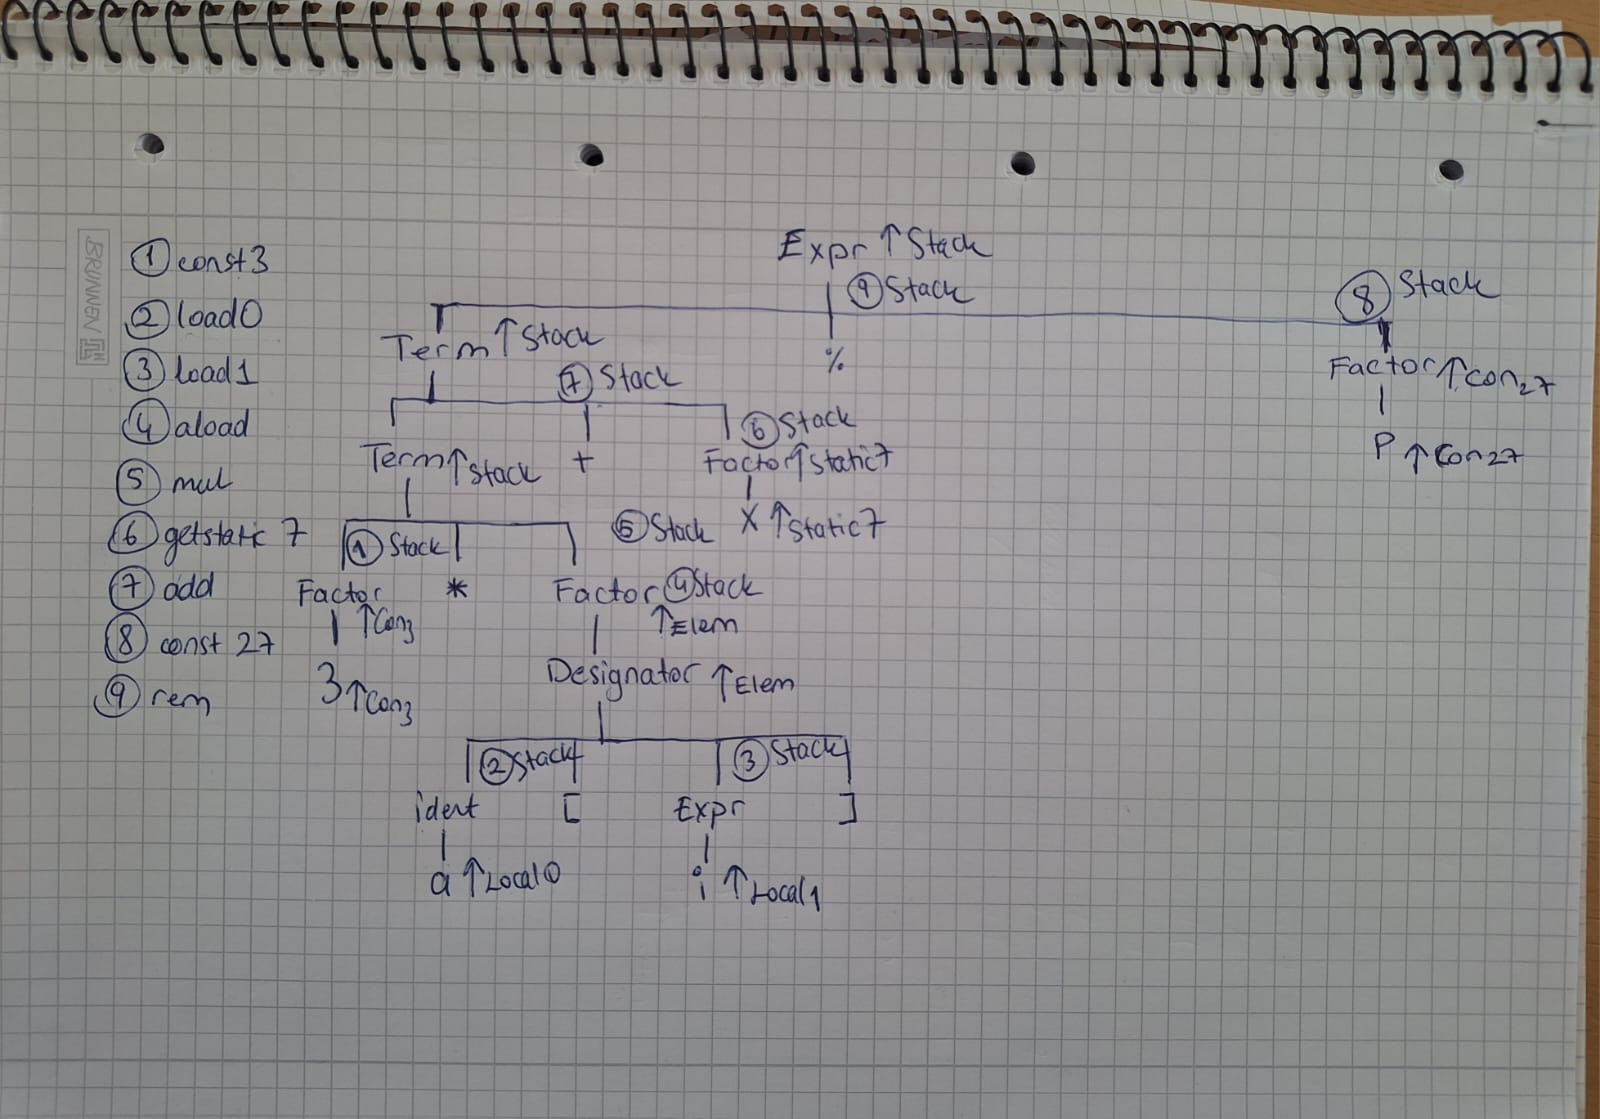 BRUNNEN
① const3
② load0
③ load1
④ aload
⑤ mul
⑥ getstatic 7
⑦ add
⑧ const 27
⑨ rem
Expr ↑ Stack
⑨ Stack
⑧ Stack
Term ↑ Stack
%
Factor ↑ Con27
⑦ Stack
P ↑ Con27
Term ↑ Stack
+
⑥ Stack
Factor ↑ Static7
X ↑ Static7
① Stack
⑤ Stack
Factor ↑ Con3
*
Factor ④ Stack
↑ Elem
3 ↑ Con3
Designator ↑ Elem
② Stack
③ Stack
ident
[
Expr
]
a ↑ Local0
i ↑ Local1